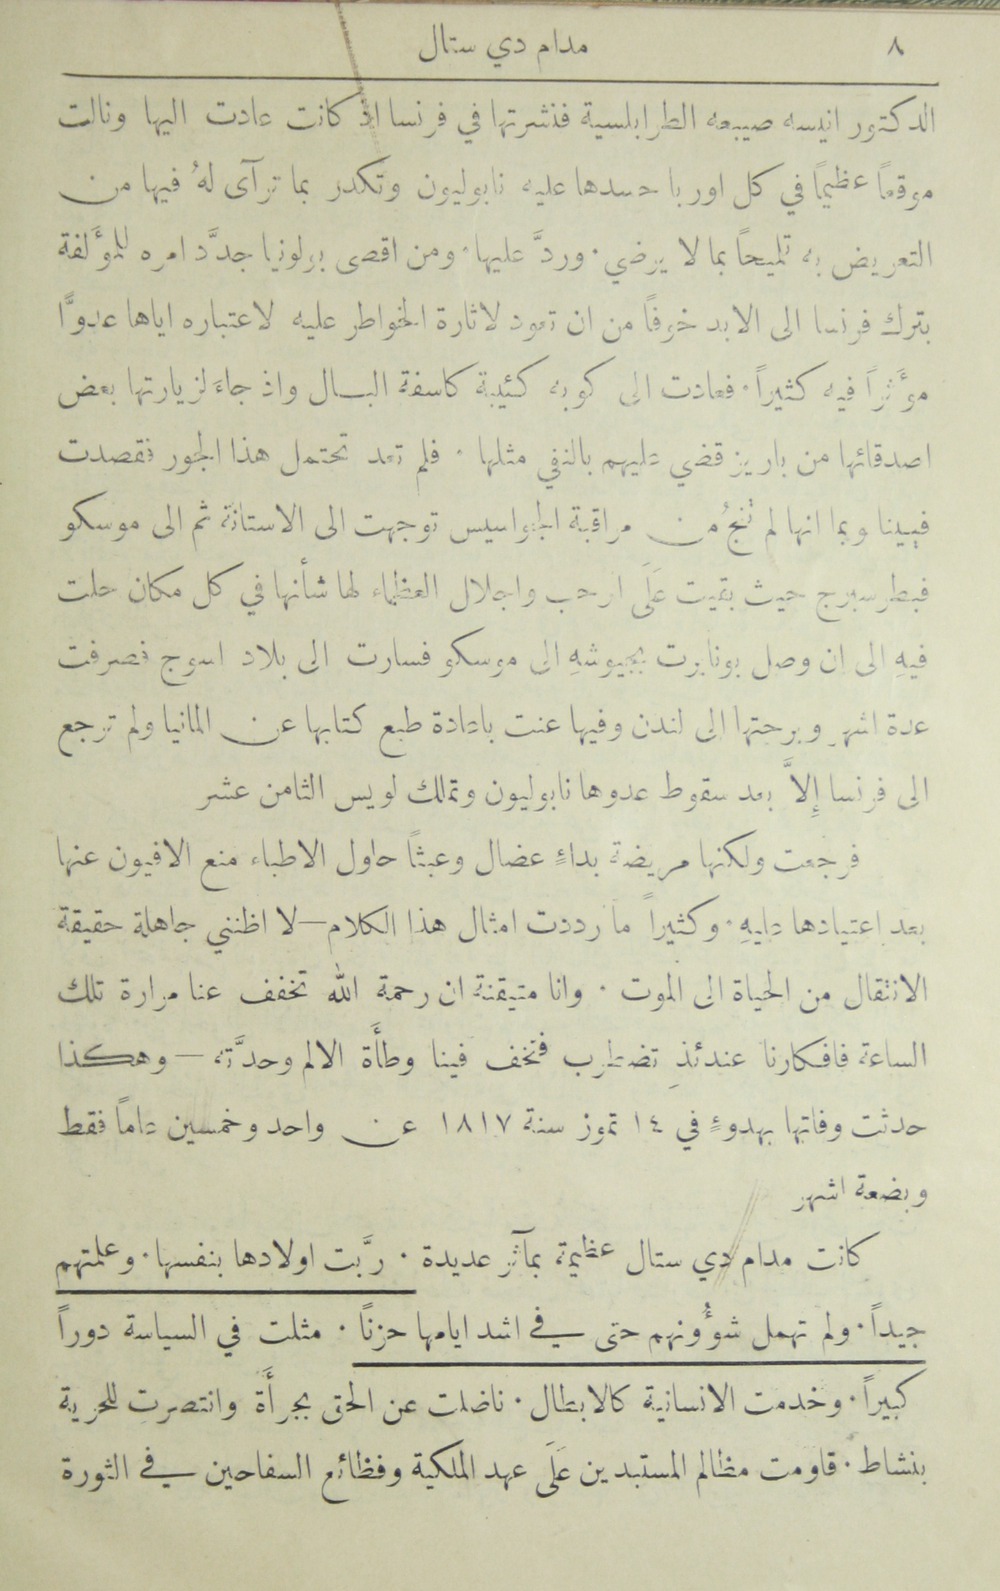 ٨ مدام دي ستال
الدكتور انيسه صيبعه الطرابلسية فنشرتها في فرنسا اذ كانت عادت اليها ونالت
موقعاً عظيماً في كل اوربا حسدها عليه نابوليون وتكدر بما ترآى لهُ فيها من
التعريض به تلميحاً بما لا يرضي . وردَّ عليها . ومن اقصى بولونيا جدَّد امره للمؤَلفة
بترك فرنسا الى الابد خوفاً من ان تعود لاثارة الخواطر عليه لاعتباره اياها عدوًّا
مؤَثراً فيه كثيراً . فعادت الى كوبه كئيبة كاسفة البال واذ جاءَ لزيارتها بعض
اصدقائها من باريز قضي عليهم بالنفي مثلها . فلم تعد تحتمل هذا الجور فقصدت
فيينا وبما انها لم تنجُ من مراقبة الجواسيس توجهت الى الاستانة ثم الى موسكو
فبطرسبرج حيث بقيت عَلَى ارحب واجلال العظماء لها شأنها في كل مكان حلت
فيهِ الى ان وصل بونابرت بجيوشهِ الى موسكو فسارت الى بلاد اسوج فصرفت
عدة اشهر وبرحتها الى لندن وفيها عنت باعادة طبع كتابها عن المانيا ولم ترجع
الى فرنسا إِلاَّ بعد سقوط عدوها نابوليون وتملك لويس الثامن عشر
فرجعت ولكنها مريضة بداءٍ عضال وعبثاً حاول الاطباء منع الافيون عنها
بعد اعتيادها عليهِ . وكثيراً ما رددت امثال هذا الكلام — لا اظنني جاهلة حقيقة
الانتقال من الحياة الى الموت . وانا متيقنة ان رحمة الله تخفف عنا مرارة تلك
الساعة فافكارنا عندئذِ تضطرب فتخف فينا وطأَة الالم وحدَّته — وهكذا
حدثت وفاتها بهدوءٍ في ١٤ تموز سنة ١٨١٧ عن واحد وخمسين عاماً فقط
وبضعة اشهر
كانت مدام دي ستال عظيمة بمآثر عديدة . ربَّت اولادها بنفسها . وعلمتهم
جيداً . ولم تهمل شؤُونهم حتى في اشد ايامها حزناً . مثلت في السياسة دوراً
كبيراً . وخدمت الانسانية كالابطال . ناضلت عن الحق بجرأَة وانتصرت للحرية
بنشاط . قاومت مظالم المستبدين عَلَى عهد الملكية وفظائع السفاحين في الثورة